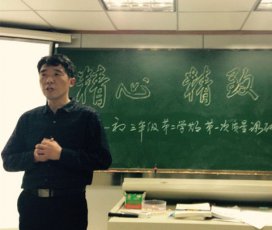 精心 精致
—初三年级第二学期第一次质量调研